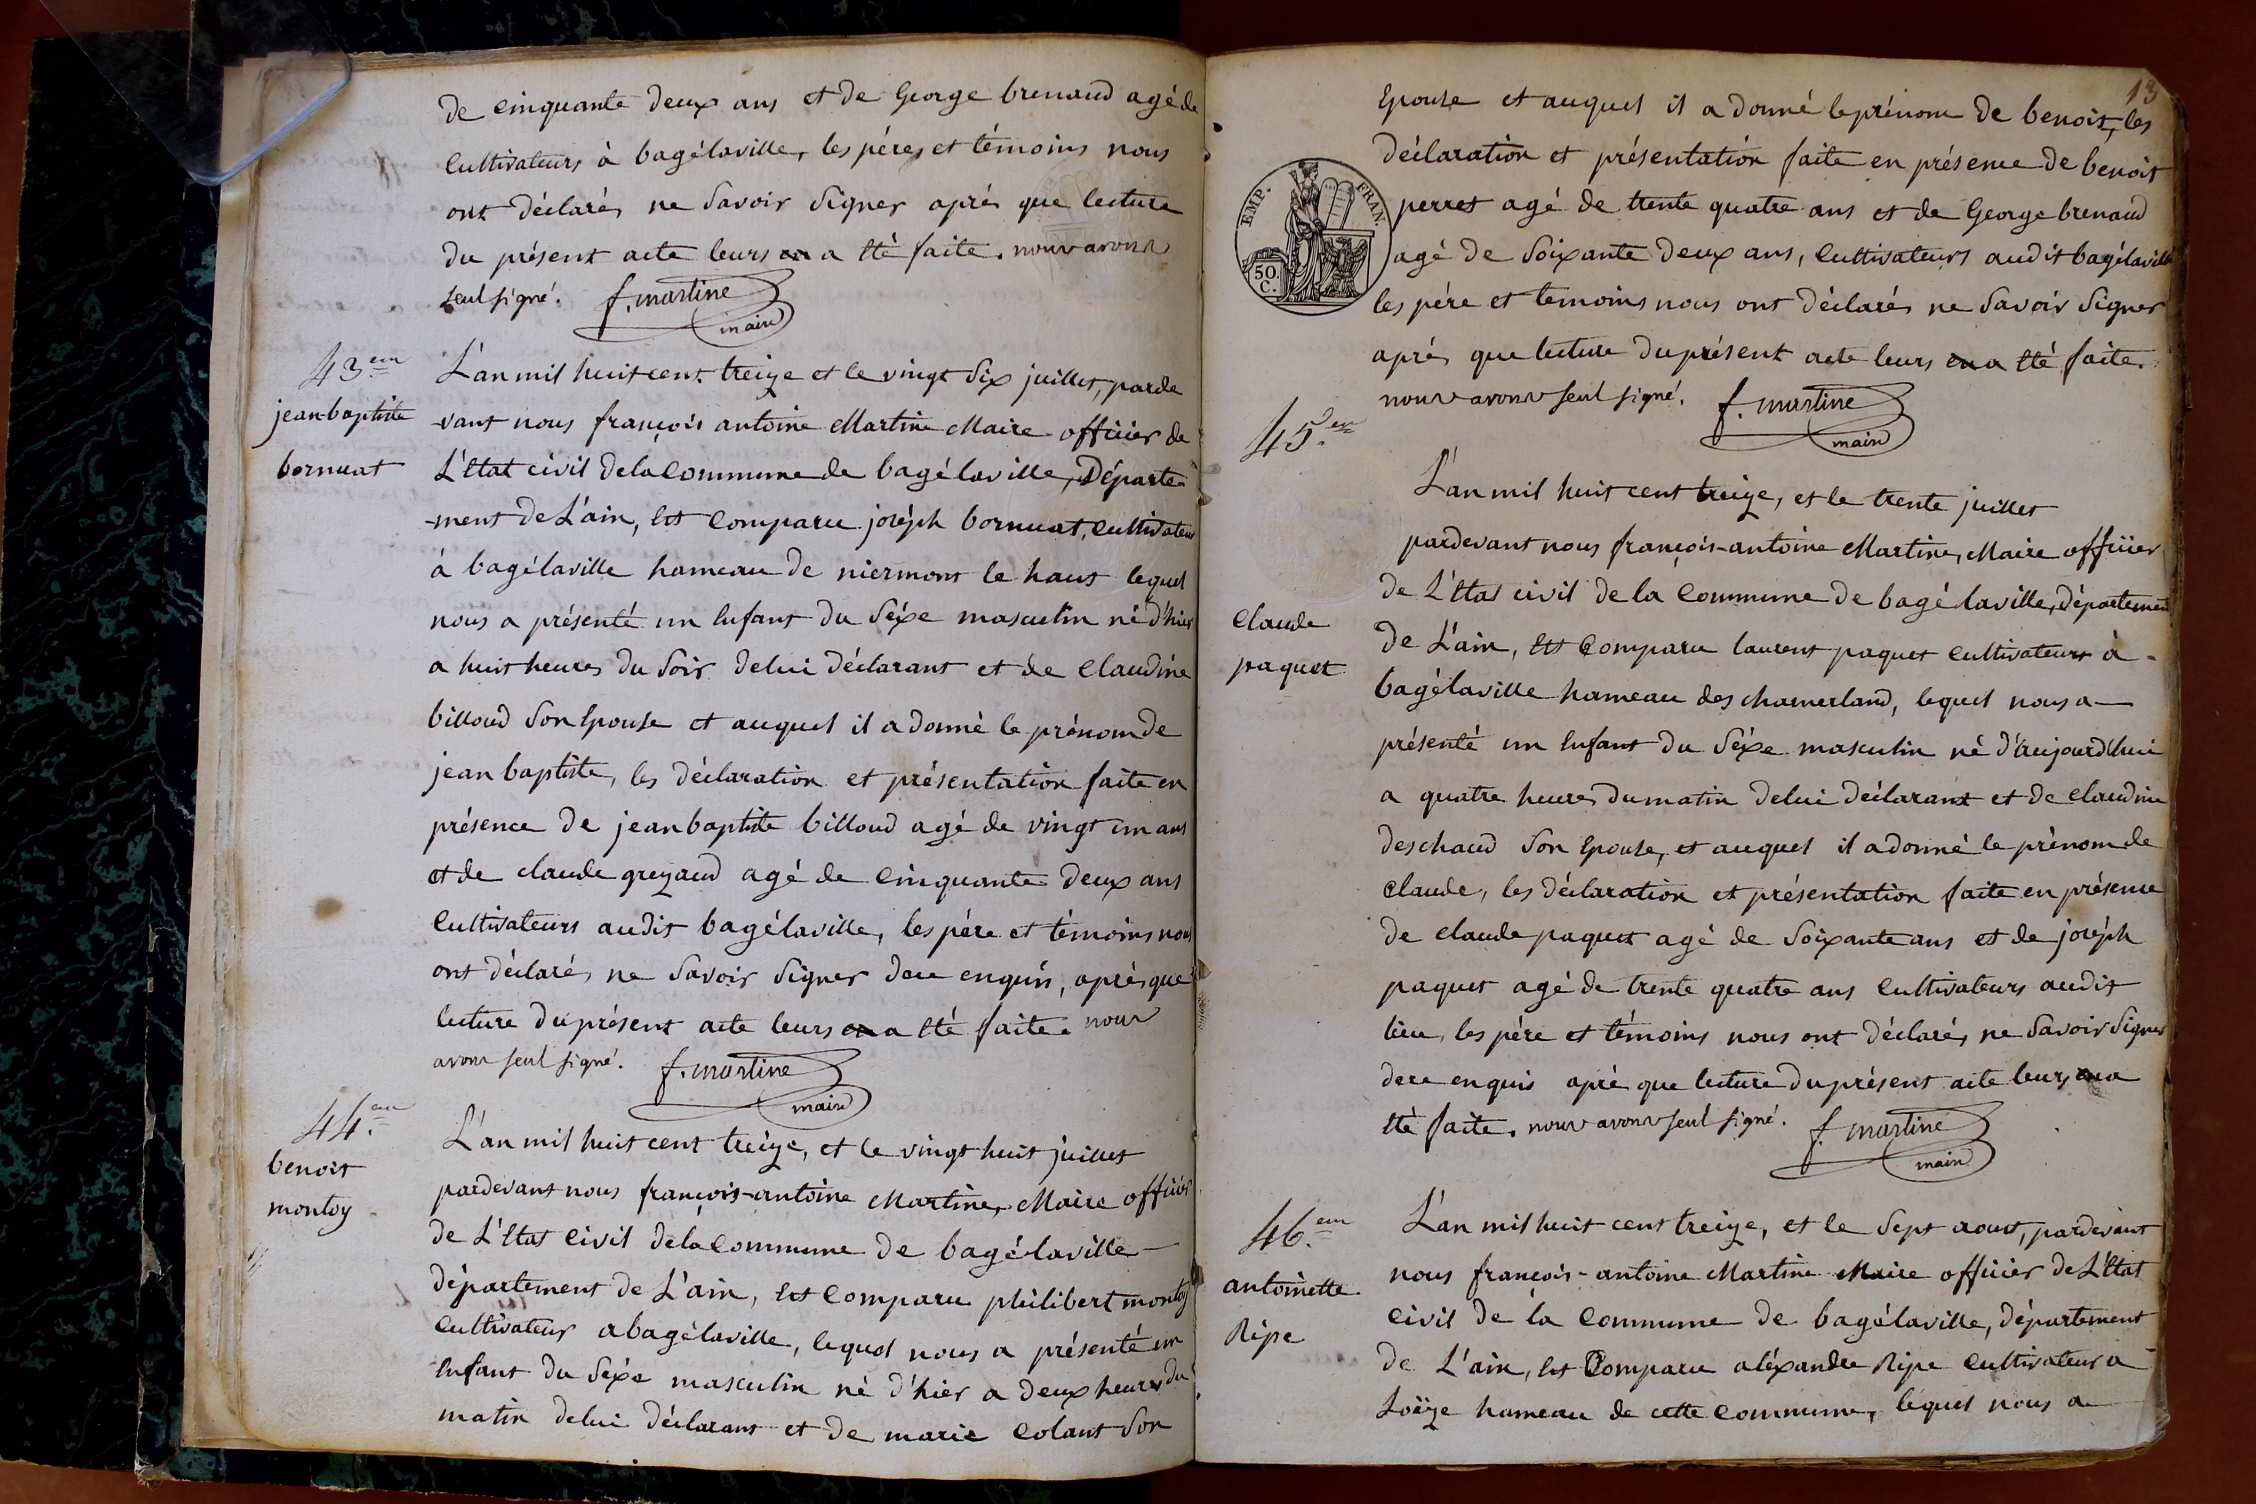 de cinquante deux ans et de George brenaud agé de
Cultivateurs à bagélaville, les péres et témoins nous
ont déclarés ne Savoir Signer aprés que lecture
du présent acte leurs en a Eté faite. nous avons
seul signé. f. martine
maire
43.em
jean baptiste
bornuat
L'an mil huit cent treize et le vingt Six juillet, parde
-vant nous françois antoine Martine Maire officier de
L'Etat civil de la Commune de bagélaville, Départe-
-ment de L'ain, Est Comparu joséph bornuat, Cultivateur
à bagélaville hameau de niermont le haut lequel
nous a présenté un Enfant du Séxe masculin né d'hier
a huit heures du Soir de lui déclarant et de Claudine
billoud Son Epouse et auquel il a donné le prénom de
jean baptiste, les déclaration et présentation faite en
présence de jean baptiste billoud agé de vingt un ans
et de claude grezaud agé de Cinquante deux ans
Cultivateurs audit bagélaville, les pére et témoins nous
ont déclarés ne Savoir Signer de ce enquis, aprés que
lecture du présent acte leurs en a Eté faite. nous
avons seul signé. f. martine
maire
44.em
benoit
montoy
L'an mil huit cent treize, et le vingt huit juillet
pardevant nous françois-antoine Martine, Maire officier
de L'Etat Civil de la Commune de bagélaville
département de L'ain, Est Comparu philibert montoy
Cultivateur a bagélaville, lequel nous a présenté un
Enfant du Séxe masculin né d'hier a deux heures du
matin de lui déclarant et de marie Colant Son
13
Epouse et auquel il a donné le prénom de benoit, les
déclaration et présentation faite en présence de benoit
perret agé de trente quatre ans et de George brenaud
agé de Soixante deux ans, Cultivateurs audit bagélaville
les pére et temoins nous ont déclarés ne Savoir Signer
aprés que lecture du présent acte leurs en a Eté faite.
nous avons seul signé. f. martine
maire
EMP. FRAN.
50.
C.
45.em
claude
paquet
L'an mil huit cent treize, et le trente juillet
pardevant nous françois-antoine Martine, Maire officier
de L'Etat civil de la Commune de bagélaville, département
de L'ain, Est Comparu laurent paquet cultivateurs à
bagélaville hameau des chamerland, lequel nous a
présenté un Enfant du Séxe masculin né d'aujourd'hui
a quatre heures du matin de lui déclarant et de claudine
deschaud Son Epouse, et auquel il a donné le prénom de
claude, les déclaration et présentation faite en présence
de claude paquet agé de Soixante ans et de joséph
paquet agé de trente quatre ans Cultivateurs audit
lieu, les pére et témoins nous ont déclarés ne Savoir Signer
de ce enquis aprè que lecture du présent acte leurs en a
Eté faite. nous avons seul signé. f. martine
maire
46.em
antoinette
Ripe
L'an mil huit cent treize, et le Sept aout, pardevant
nous françois-antoine Martine Maire officier de L'Etat
civil de la Commune de bagélaville, département
de L'ain, Est Comparu aléxandre Ripe Cultivateur a
Loëze hameau de cette Commune, lequel nous a